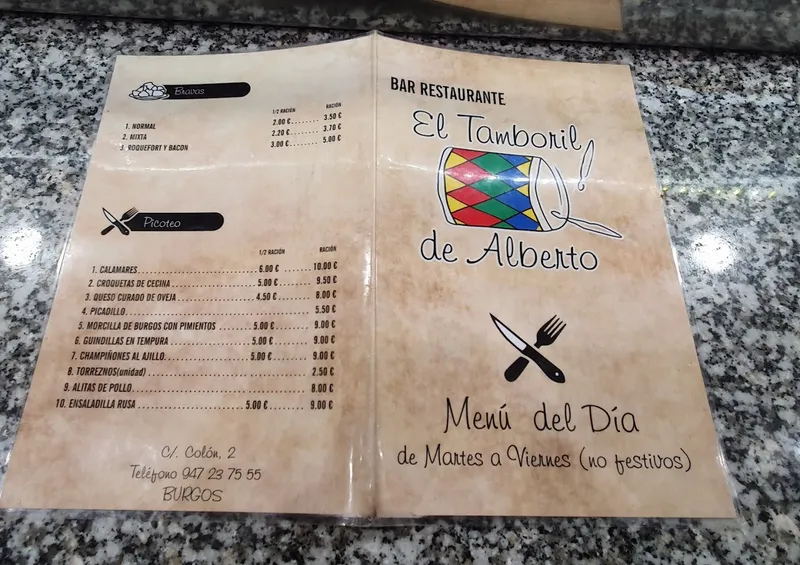 Bravas
1/2 RACIÓN RACIÓN
1. NORMAL 2.00 €........ 3.50 €
2. MIXTA 2.20 €........ 3.70 €
3. ROQUEFORT Y BACON 3.00 €........ 5.00 €
Picoteo
1/2 RACIÓN RACIÓN
1. CALAMARES........................ 6.00 € ........ 10.00 €
2. CROQUETAS DE CECINA........................ 5.00 €........ 9.50 €
3. QUESO CURADO DE OVEJA........................ 4.50 €........ 8.00 €
4. PICADILLO........................ 5.50 €
5. MORCILLA DE BURGOS CON PIMIENTOS ........ 5.00 €........ 9.00 €
6. GUINDILLAS EN TEMPURA........................ 5.00 €........ 9.00 €
7. CHAMPIÑONES AL AJILLO........................ 5.00 €........ 9.00 €
8. TORREZNOS(unidad)........................ 2.50 €
9. ALITAS DE POLLO........................ 8.00 €
10. ENSALADILLA RUSA ........................ 5.00 €........ 9.00 €
C/. Colón, 2
Teléfono 947 23 75 55
BURGOS
BAR RESTAURANTE
El Tamboril
de Alberto
Menú del Día
de Martes a Viernes (no festivos)